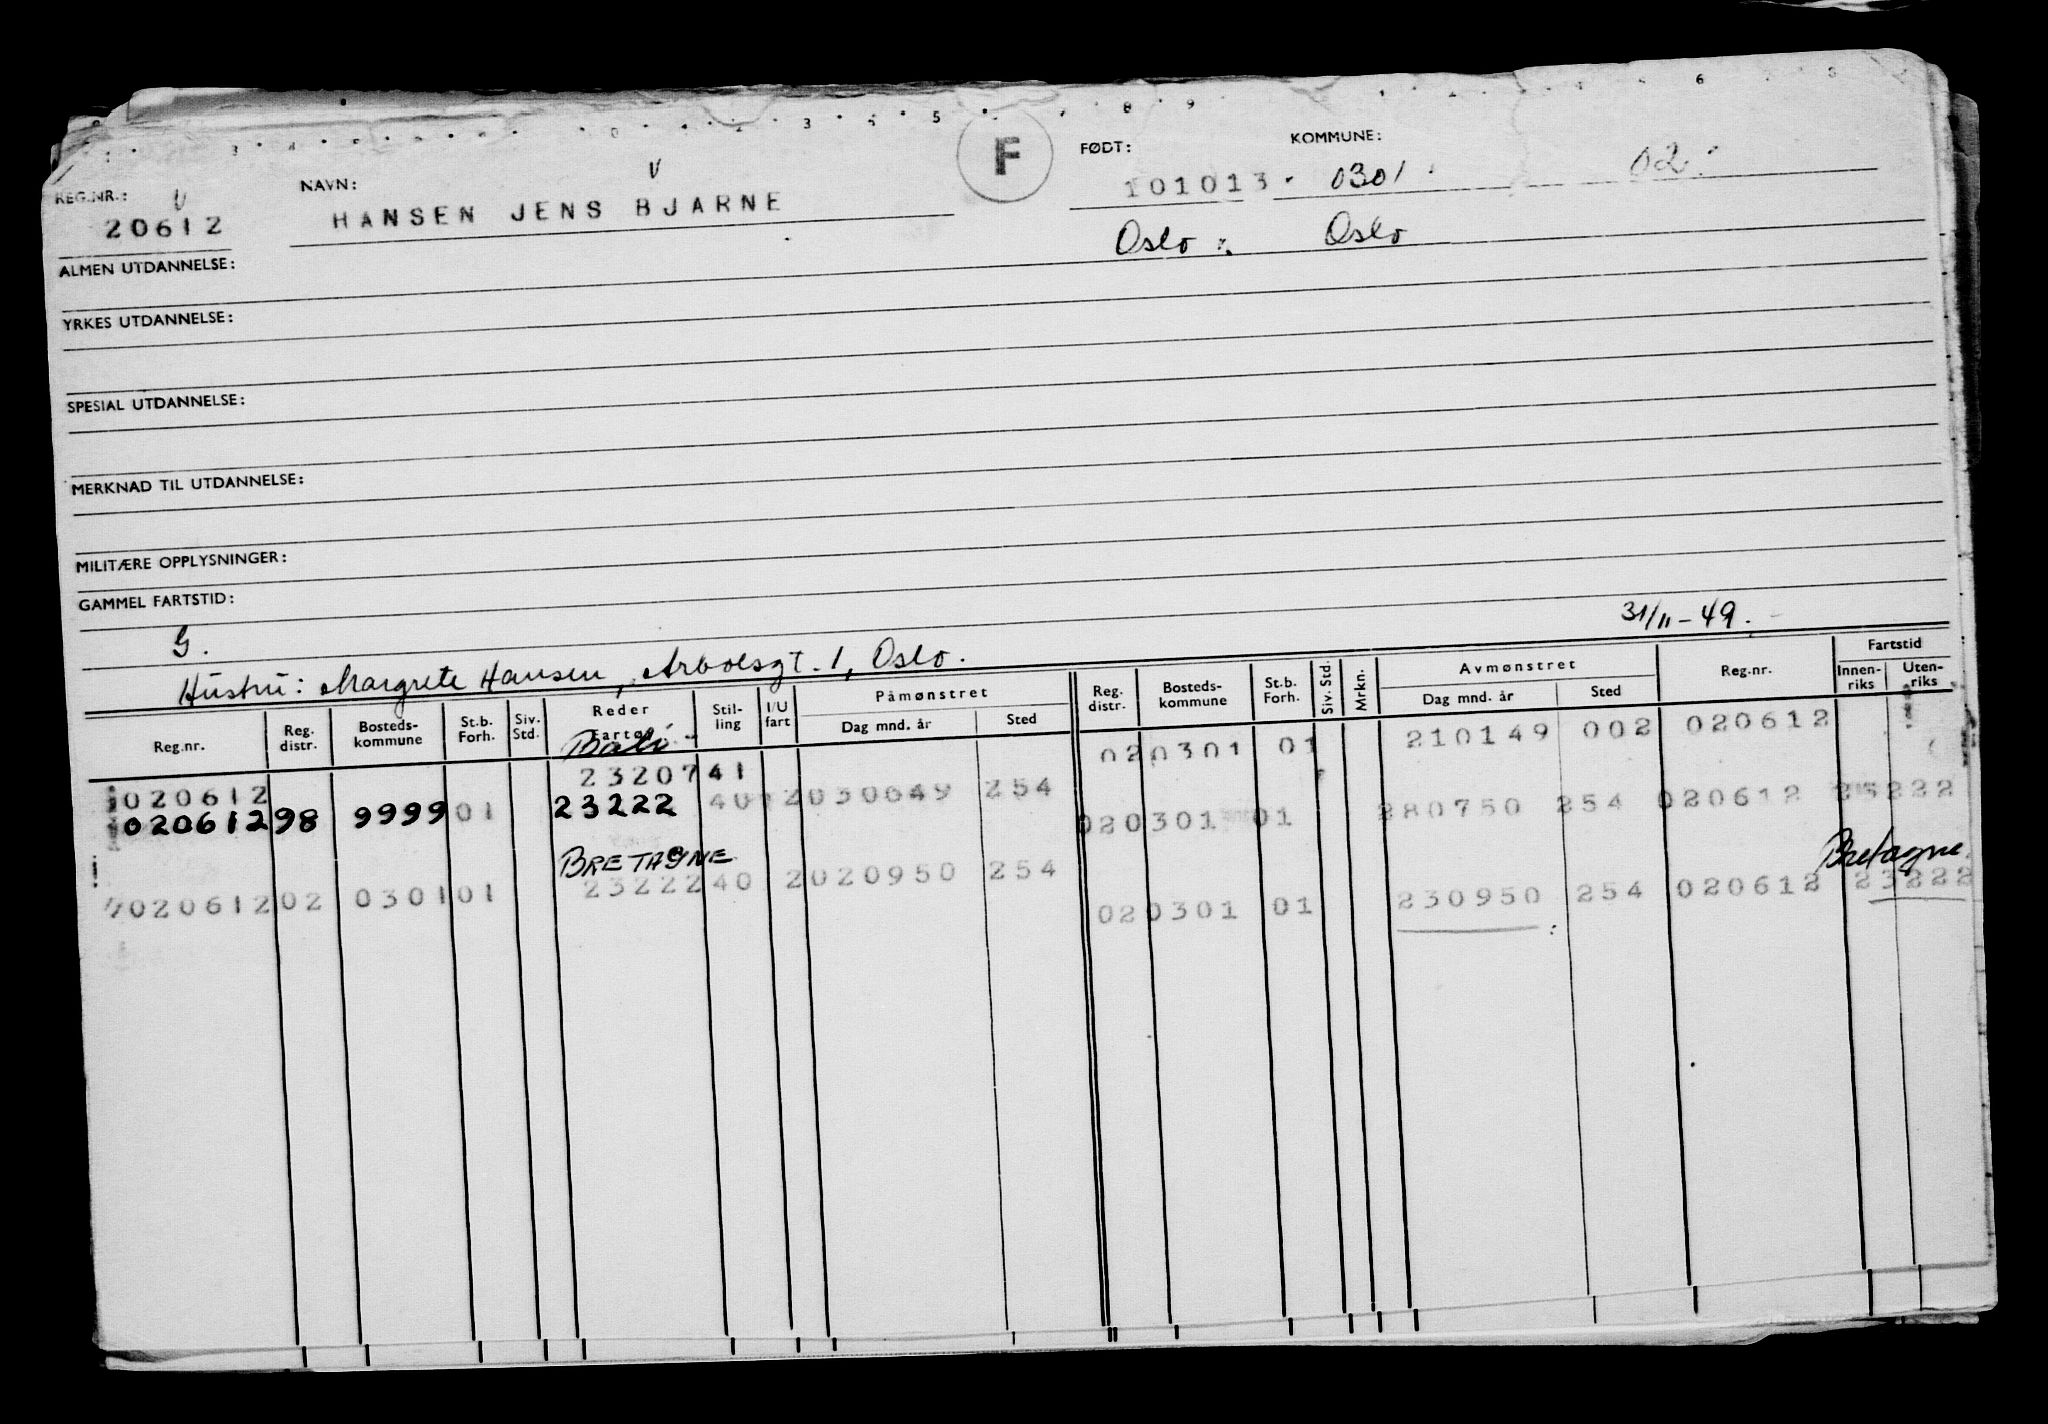 F
REG.NR.: NAVN: FØDT: KOMMUNE:
20612 HANSEN JENS BJARNE 101013 0301 02
Oslo Oslo
ALMEN UTDANNELSE:
YRKES UTDANNELSE:
SPESIAL UTDANNELSE:
MERKNAD TIL UTDANNELSE:
MILITÆRE OPPLYSNINGER:
GAMMEL FARTSTID:
G. 31/11-49.
Hustru: Margrete Hansen, Arboesgt. 1, Oslo.
Reg.nr. Reg. distr. Bosteds-kommune St.b. Forh. Siv. Std. Reder Fartøi Stil-ling I/U fart Påmønstret Dag mnd. år Sted Reg. distr. Bosteds-kommune St.b. Forh. Siv. Std. Mrkn. Avmønstret Dag mnd. år Sted Reg.nr. Fartstid Innen-riks Uten-riks
Bali
020612 2320741 020301 01 210149 002 020612
020612 98 9999 01 23222 254 020301 01 280750 254 020612
BRETAGNE Bretagne
020612 02 0301 01 23222 40 2 020950 254 020301 01 230950 254 020612 23222